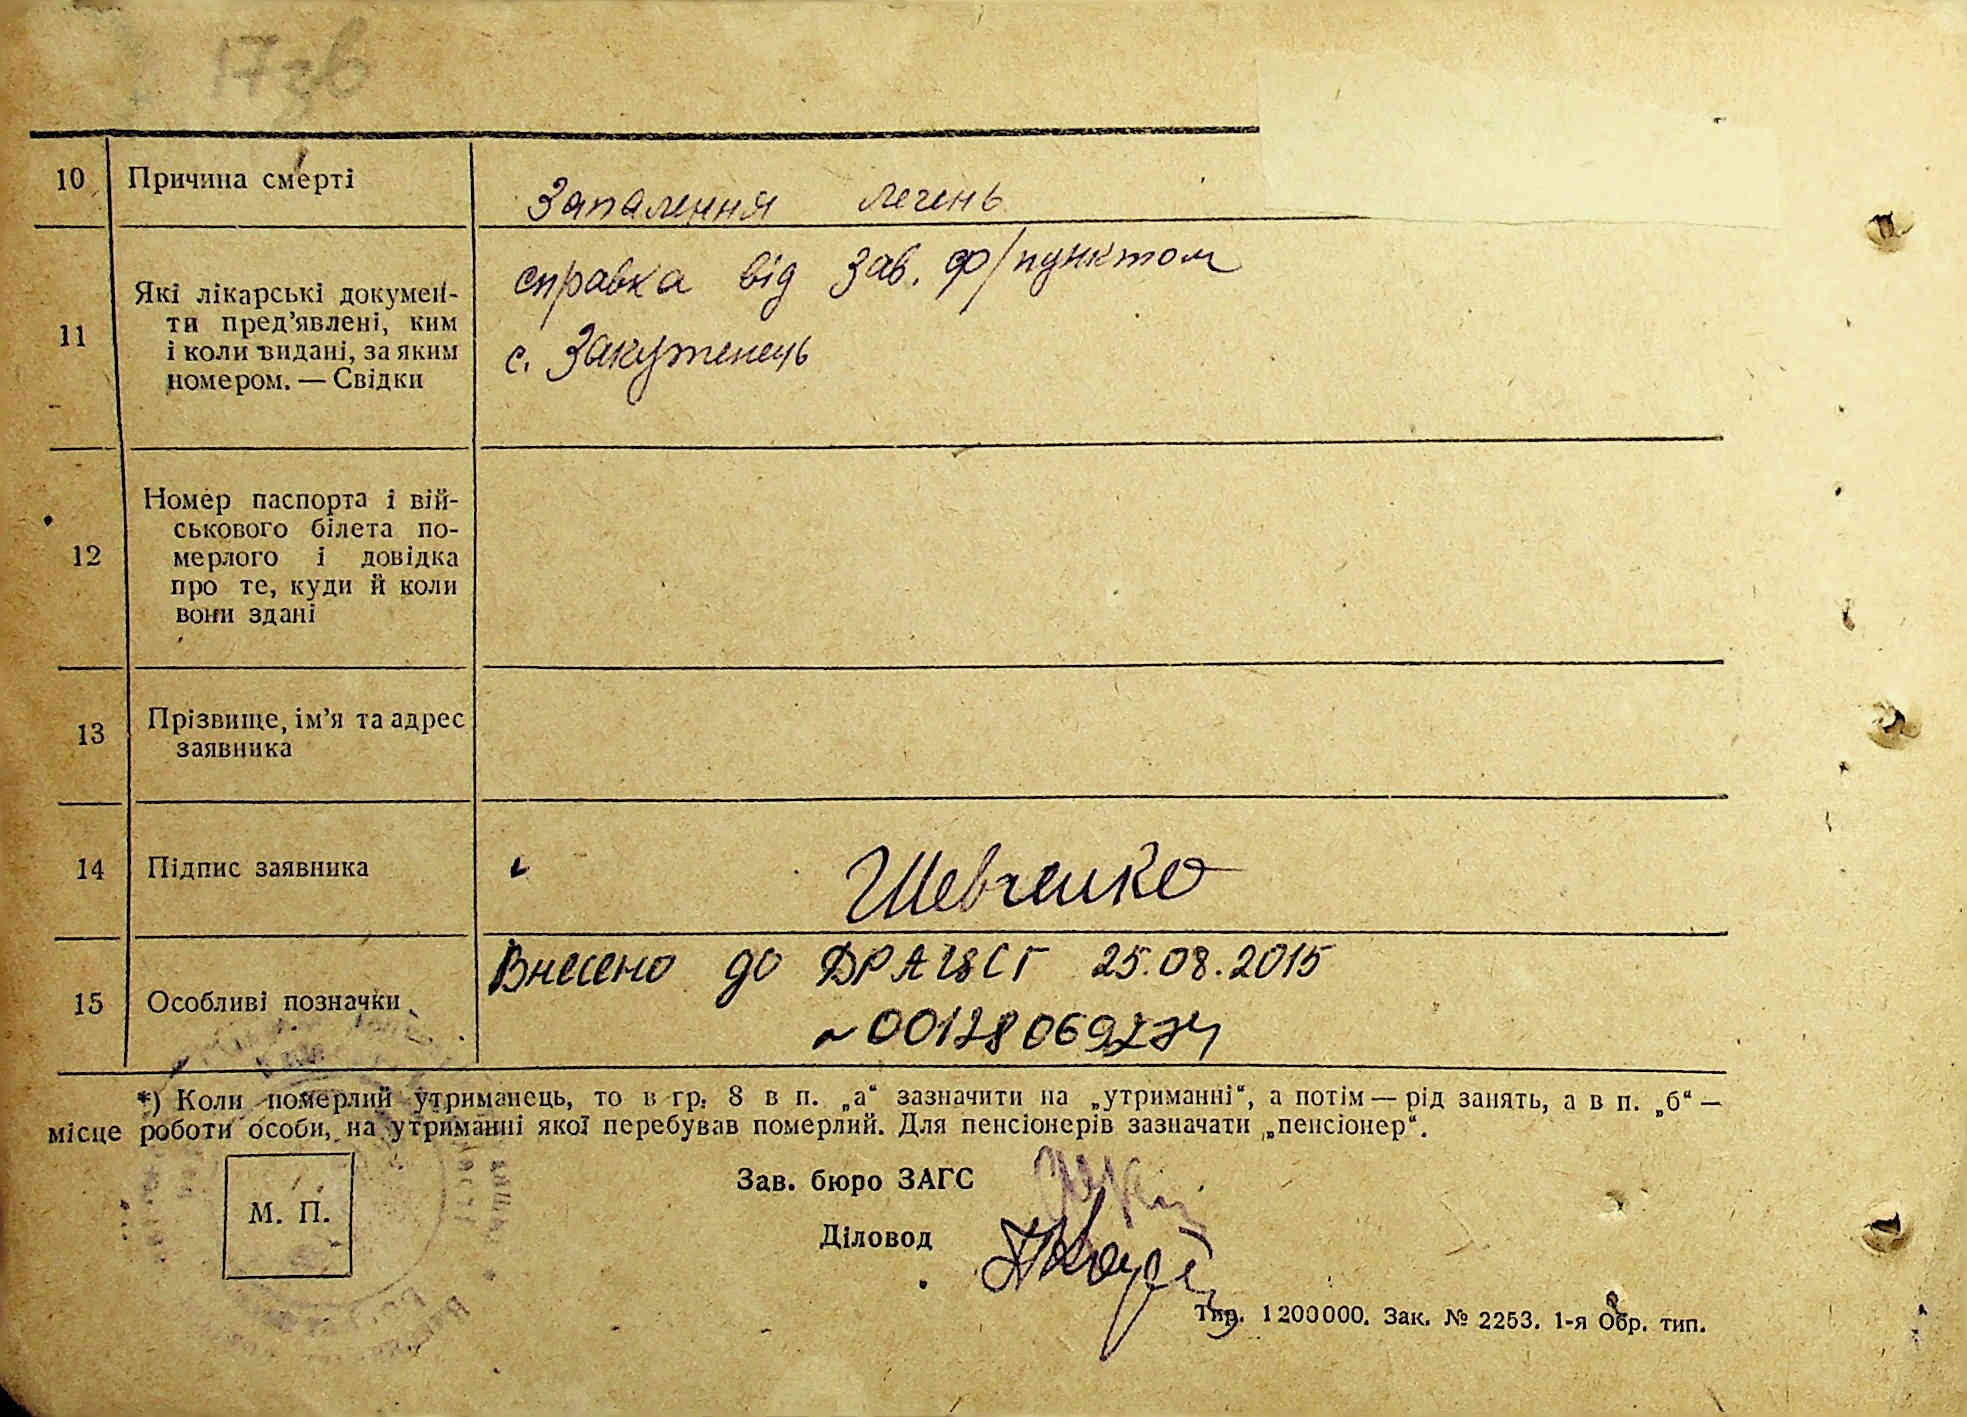 17зв
10 Причина смерті Запалення легень
11 Які лікарські докумен-
ти пред’явлені, ким
і коли видані, за яким
номером. — Свідки
справка від зав. ф/пунктом
с. Закутенець
12 Номер паспорта і вій-
ськового білета по-
мерлого і довідка
про те, куди й коли
вони здані
13 Прізвище, ім’я та адрес
заявника
14 Підпис заявника Шевченко
15 Особливі позначки
Внесено до ДРАЦСГ 25.08.2015
*) Коли померлий утриманець, то в гр. 8 в п. „а“ зазначити на „утриманні“, а потім — рід занять, а в п. „б“ —
місце роботи особи, на утриманні якої перебував померлий. Для пенсіонерів зазначати „пенсіонер“.
М. П.
Зав. бюро ЗАГС
Діловод
Тир. 1200000. Зак. № 2253. 1-я Обр. тип.